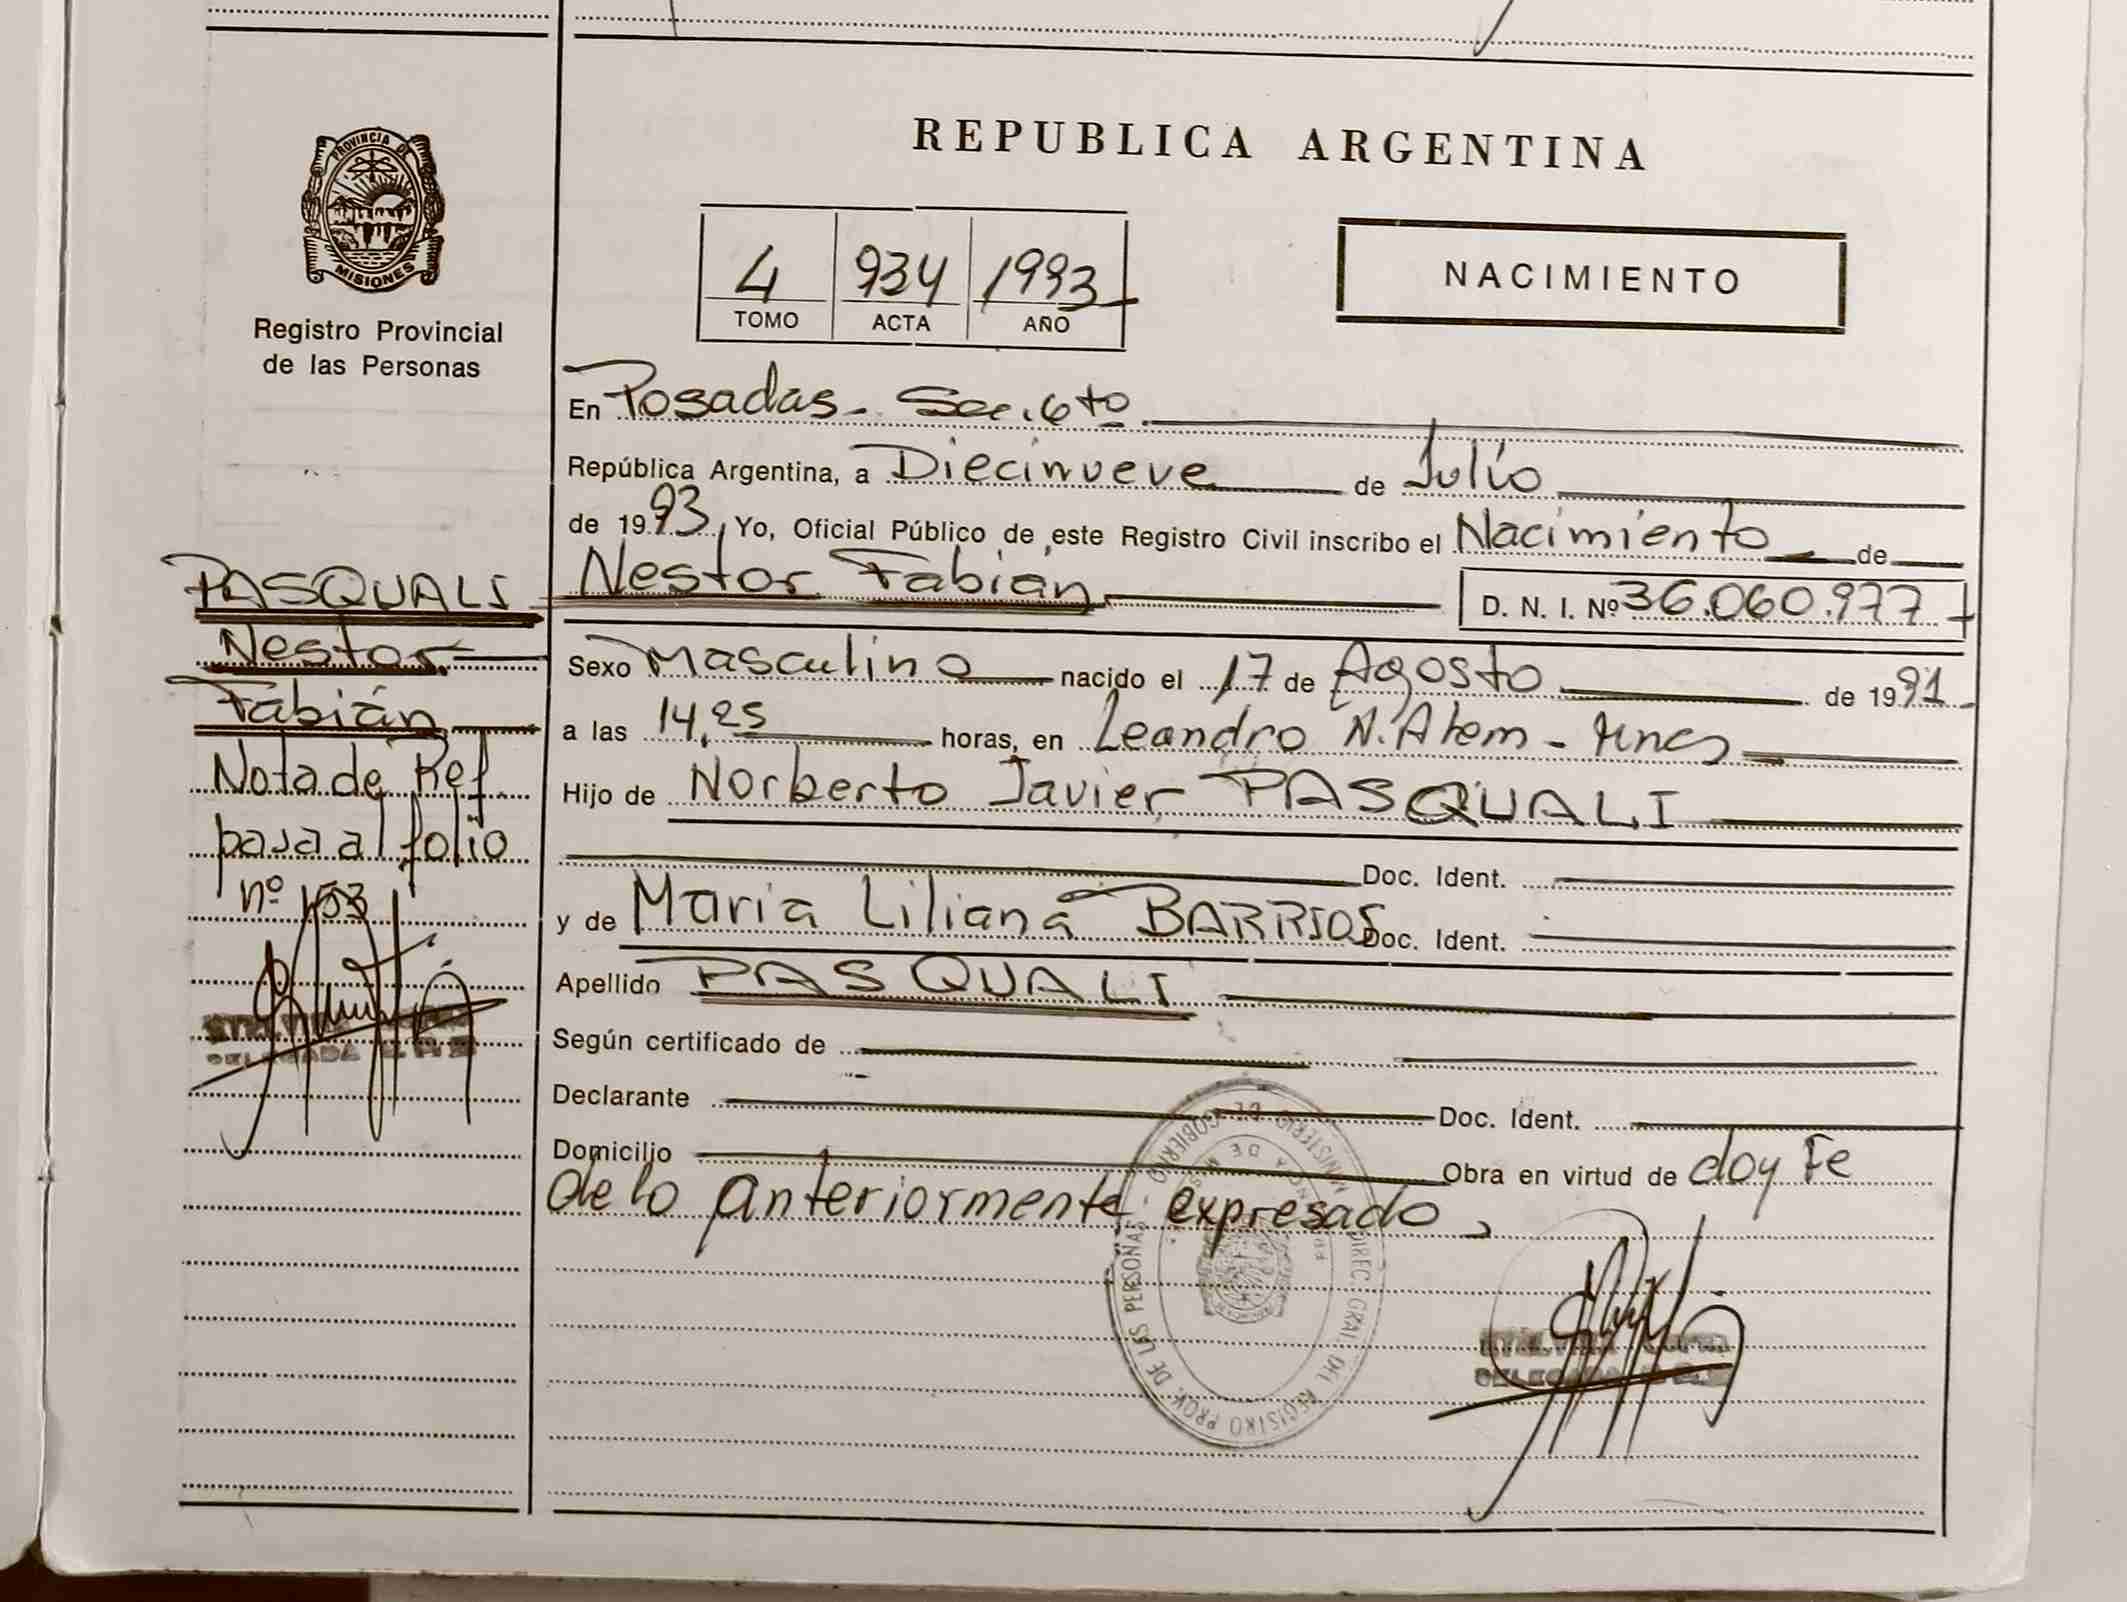 PROVINCIA DE
MISIONES
Registro Provincial
de las Personas
REPUBLICA ARGENTINA
4 934 1993
TOMO ACTA AÑO
NACIMIENTO
En Posadas - Sec. 6to
República Argentina, a Diecinueve de Julio
de 1993, Yo, Oficial Público de este Registro Civil inscribo el Nacimiento de
PASQUALI Nestor Fabian D. N. I. Nº 36.060.977
Nestor
Fabián
Nota de Ref
pasa al folio
nº 103
DELEGADA
Sexo Masculino nacido el 17 de Agosto de 1991
a las 14,25 horas, en Leandro N. Alem - Mnes
Hijo de Norberto Javier PASQUALI
Doc. Ident.
y de Maria Liliana BARRIOS Doc. Ident.
Apellido PASQUALI
Según certificado de
Declarante Doc. Ident.
Domicilio Obra en virtud de doy Fe
de lo anteriormente expresado,
MINISTERIO DE GOBIERNO
DIREC. GRAL. DEL REGISTRO PROV. DE LAS PERSONAS